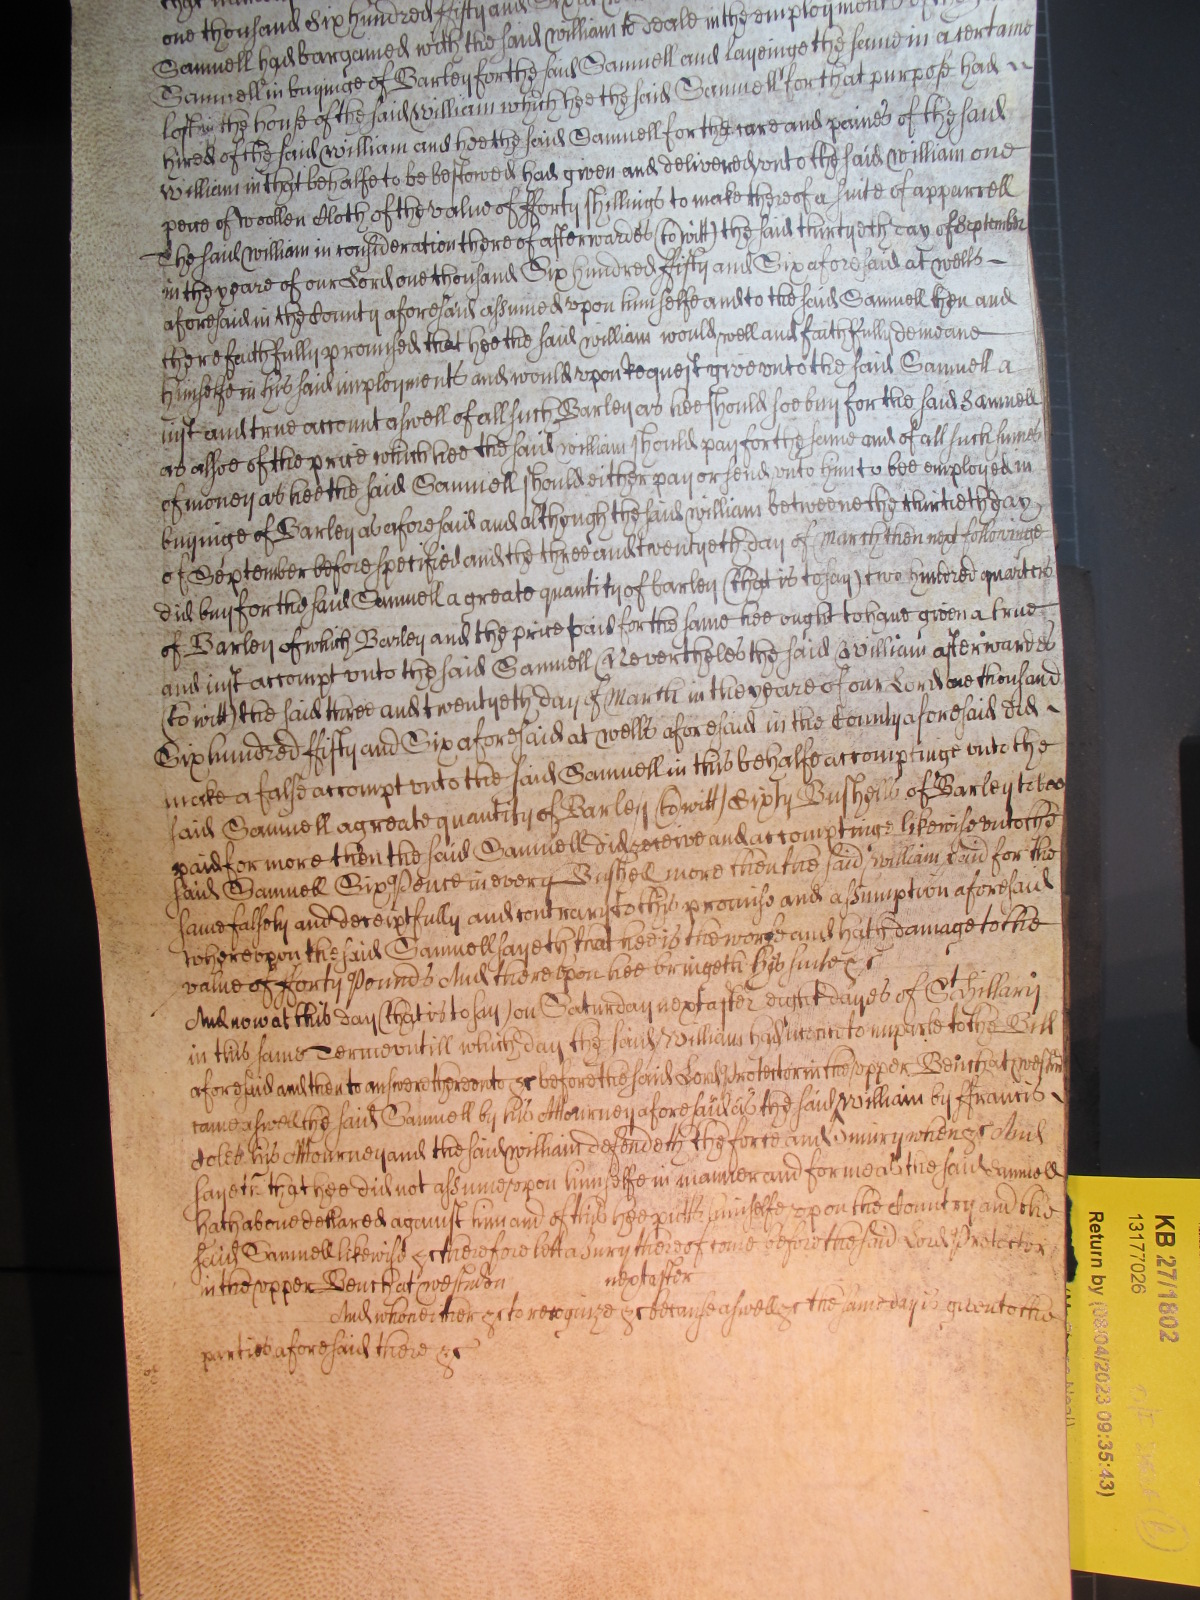 one thousand Six hundred fifty and Six
Samuell had bargained with the said William to deale in the employment of the
Samuell in buyinge of Barley for the said Samuell and layeinge the same in a certaine
loft in the house of the said William which hee the said Samuell for that purpose had
hired of the said William and hee the said Samuell for the care and paines of the said
William in that behalfe to be bestowed had given and delivered unto the said William one
pece of woollen Cloth of the value of fforty shillings to make thereof a suite of apparrell
The said William in consideration thereof afterwardes (to witt) the said thirtyeth day of September
in the yeare of our Lord one thousand Six hundred fifty and Six aforesaid at Wells
aforesaid in the County aforesaid assumed upon himselfe and to the said Samuell then and
there faithfully promised that hee the said William would well and faithfully demeane
himselfe in his said imployments and would upon request give unto the said Samuell a
iust and true account aswell of all such Barley as hee should soe buy for the said Samuell
as alsoe of the price which hee the said William should pay for the same and of all such sumes
of money as hee the said Samuell should either pay or send unto him to bee employed in
buyinge of Barley as aforesaid and although the said William betweene the thirtieth day
of September before specified and the three and twentyeth day of March then next followinge
did buy for the said Samuell a greate quantity of barley (that is to say) two hundred quarters
of Barley of which Barley and the price paid for the same hee ought to have given a true
and iust accompt unto the said Samuell Neverthelesse the said William afterwardes
(to witt) the said three and twentyeth day of March in the yeare of our Lord one thousand
Six hundred ffifty and Six aforesaid at Wells aforesaid in the County aforesaid did
make a false accompt unto the said Samuell in this behalfe accomptinge unto the
said Samuell a greate quantity of Barley (to witt) Sixty Bushells of Barley to bee
paid for more then the said Samuell did receive and accomptinge likewise unto the
said Samuell Six Pence in every Bushell more then the said William paid for the
same falsely and deceiptfully and contrary to his promise and assumption aforesaid
whereupon the said Samuell sayeth that hee is the worse and hath damage to the
value of fforty Pounds And thereupon hee bringeth his suite &c
And now at this day (that is to say) on Saturday next after eight dayes of St Hillary
in this same Terme untill which day the said William had licence to imparle to the Bill
aforesaid and then to answere thereunto &c before the said Lord Protector in the upper Bench at Westm
came aswell the said Samuell by his Attourney aforesaid as the said William by ffrancis
his Attourney and the said William defendeth the force and Iniury when &c And
sayeth that hee did not assume upon himselfe in manner and forme as the said Samuell
hath above declared against him and of this hee putts himselfe upon the Country and the
said Samuell likewise &c therefore lett a Iury thereof come before the said Lord Protector
in the upper Bench at Westmin next after
And who neither &c to recognize &c because aswell &c the same day is given to the
parties aforesaid there &c
KB 27/1802
13177026
Return by (08/04/2023 09:35:43)